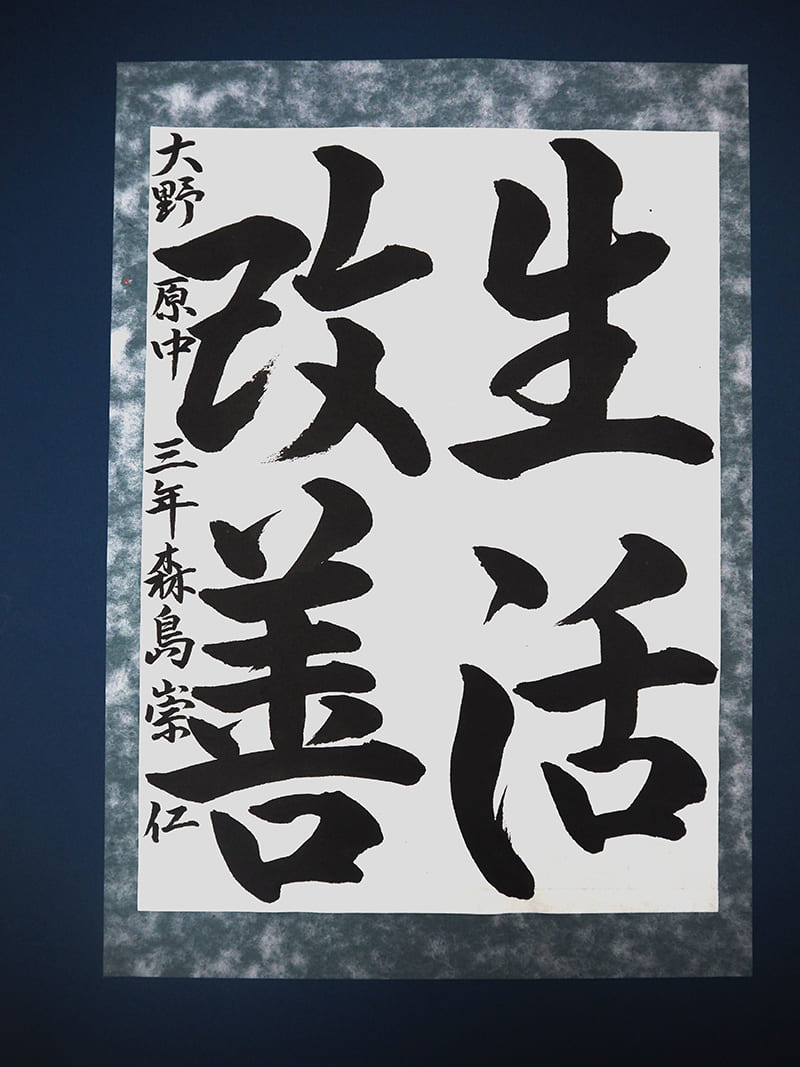 生活
改善
大野原中 三年 森島崇仁